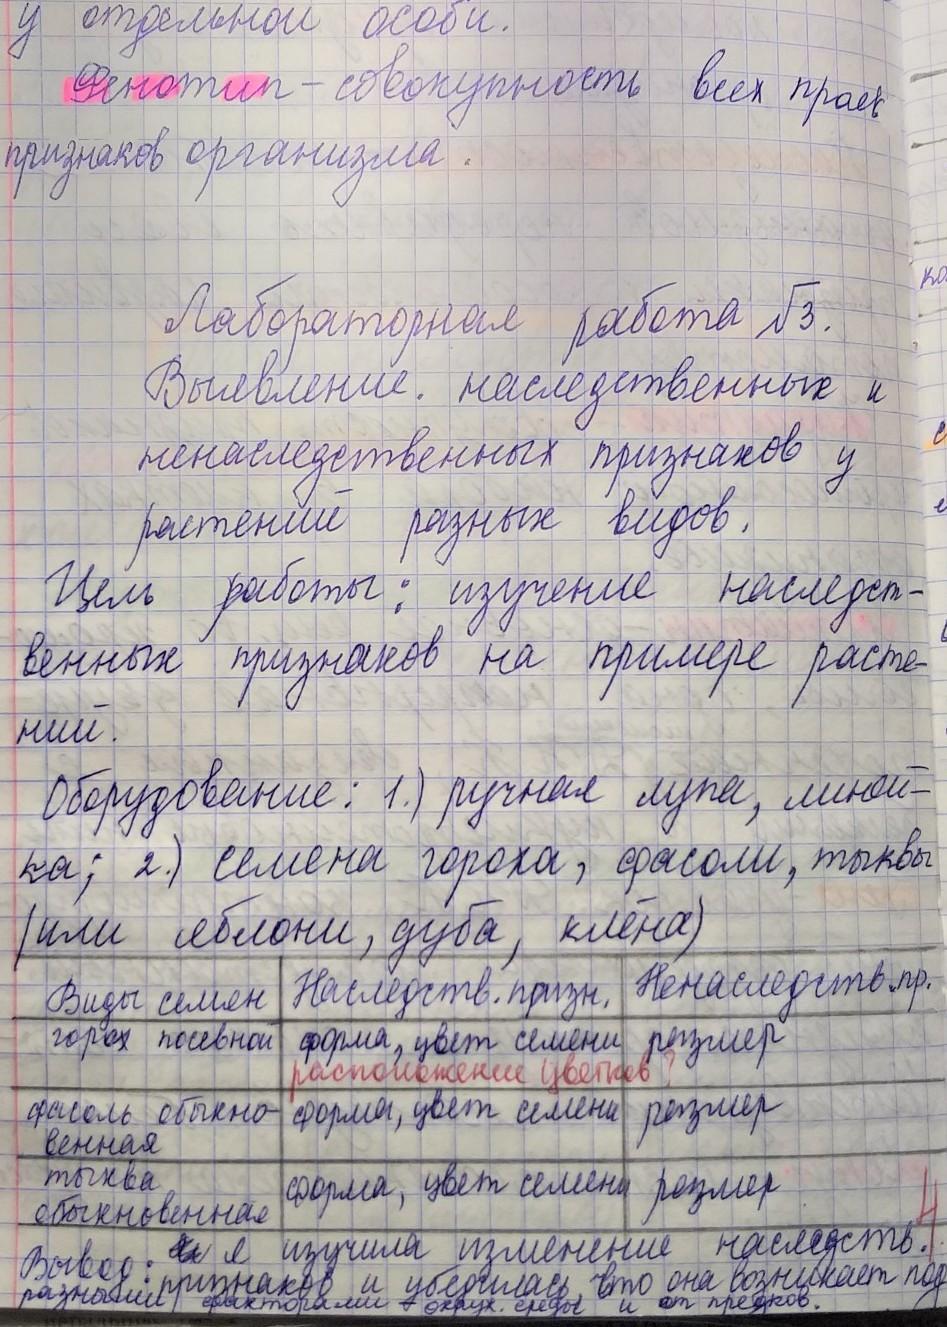 у отдельной особи.
Фенотип – совокупность всех
признаков организма.
Лабораторная работа №3.
Выявление. наследственных и
ненаследственных признаков у
растений разных видов.
Цель работы: изучение наследст-
венных признаков на примере расте-
ний.
Оборудование: 1.) ручная лупа, линей-
ка; 2.) семена гороха, фасоли, тыквы
(или яблони, дуба, клёна)
Виды семен Наследств. призн. Ненаследств. пр.
горох посевной форма, цвет семени размер
расположение цветков?
фасоль обыкно- форма, цвет семени размер
венная
тыква форма, цвет семени размер
обыкновенная
4
Вывод: я изучила изменение наследств.
признаков и убедилась, что она возникает под
разными факторами окруж. среды и от предков.